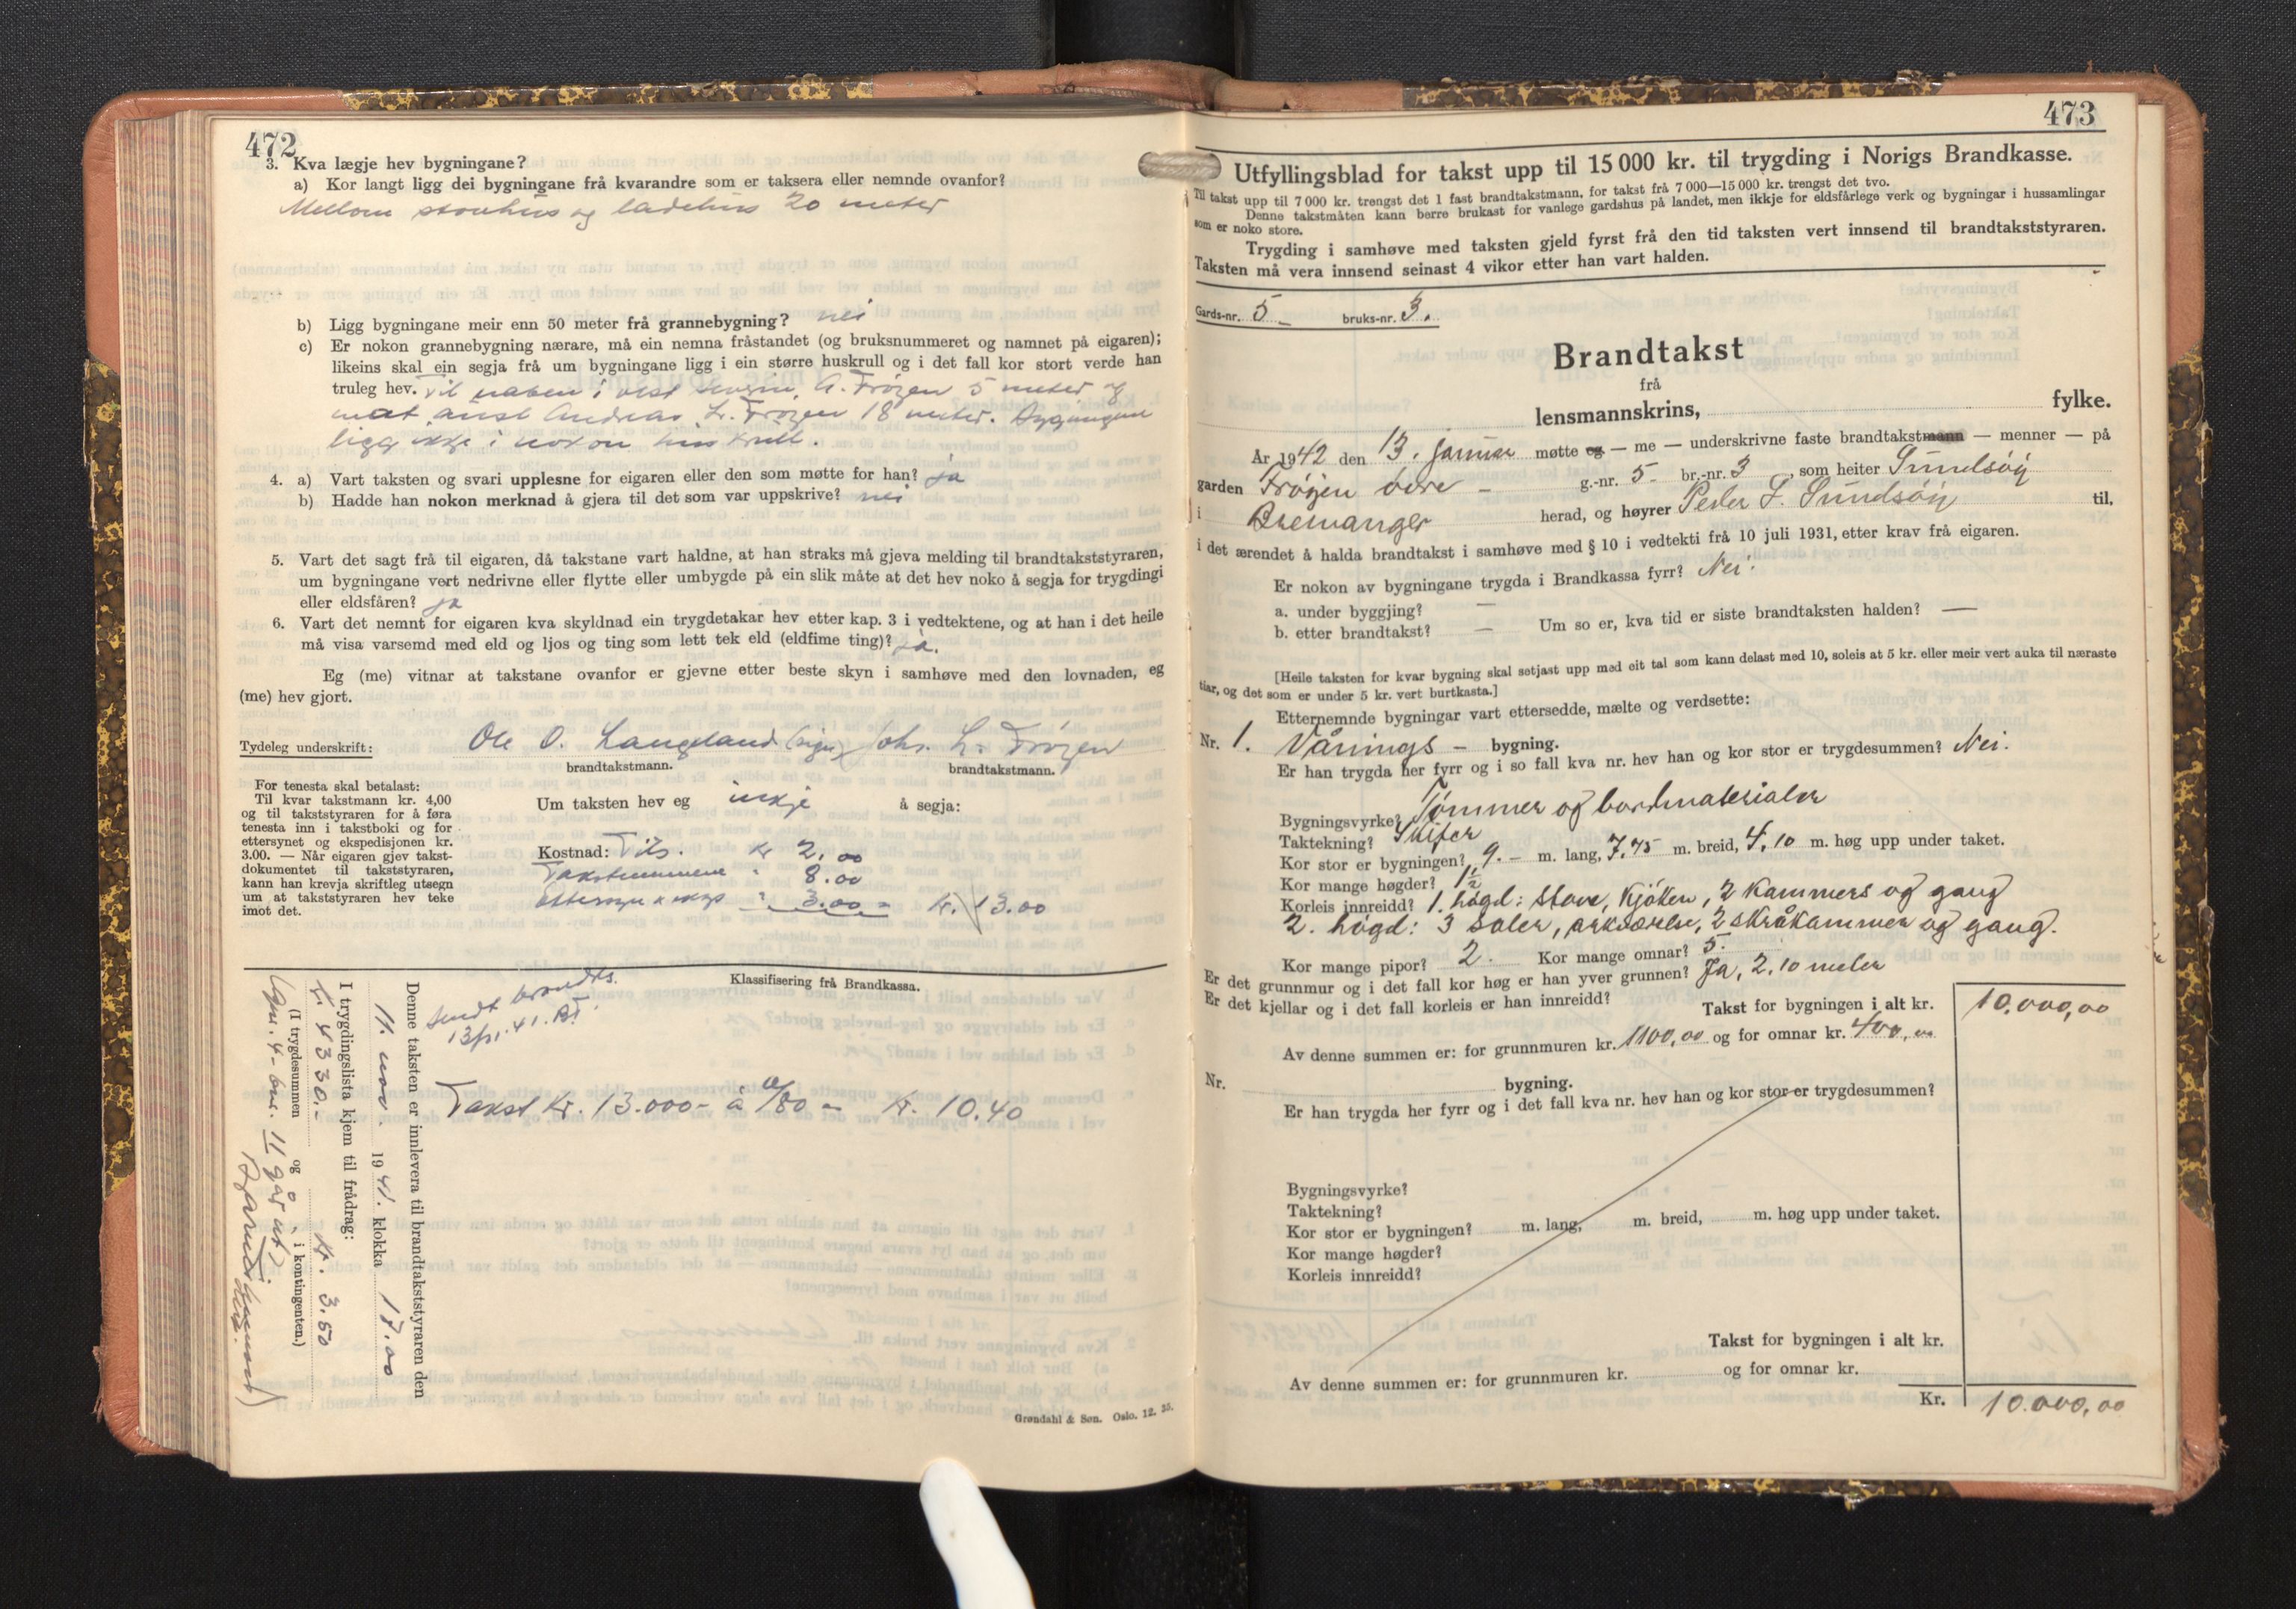 472
3. Kva lægje hev bygningane?
a) Kor langt ligg dei bygningane frå kvarandre som er taksera eller nemnde ovanfor?
Mellom stovehus og ladehus 20 meter
b) Ligg bygningane meir enn 50 meter frå grannebygning? nei
c) Er nokon grannebygning nærare, må ein nemna fråstandet (og bruksnummeret og namnet på eigaren);
likeins skal ein segja frå um bygningane ligg i ein større huskrull og i det fall kor stort verde han
truleg hev. Til naboen i vest Severin A. Frøyen 5 meter og
mot aust Andreas L. Frøyen 18 meter. Bygningane
ligg ikkje i nokon huskrull.
4. a) Vart taksten og svari upplesne for eigaren eller den som møtte for han? ja
b) Hadde han nokon merknad å gjera til det som var uppskrive? nei
5. Vart det sagt frå til eigaren, då takstane vart haldne, at han straks må gjeva melding til brandtakststyraren,
um bygningane vert nedrivne eller flytte eller umbygde på ein slik måte at det hev noko å segja for trygdingi
eller eldsfåren? ja
6. Vart det nemnt for eigaren kva skyldnad ein trygdetakar hev etter kap. 3 i vedtektene, og at han i det heile
må visa varsemd med eld og ljos og ting som lett tek eld (eldfime ting)? ja.
Eg (me) vitnar at takstane ovanfor er gjevne etter beste skyn i samhøve med den lovnaden, eg
(me) hev gjort.
Tydeleg underskrift: Ole O. Langeland (sign) Johs. L. Frøyen
brandtakstmann. brandtakstmann.
For tenesta skal betalast:
Til kvar takstmann kr. 4,00
og til takststyraren for å føra
tenesta inn i takstboki og for
ettersynet og ekspedisjonen kr.
3.00. — Når eigaren gjev takst-
dokumentet til takststyraren,
kann han krevja skriftleg utsegn
um at takststyraren hev teke
imot det.
Um taksten hev eg inkje å segja:
Kostnad: Tils. kr 2.00
Takstmennene " 8.00
" 3.00 = Kr. 13.00
Klassifisering frå Brandkassa.
Sendt brandts.
Takst Kr. 13.000- à 0/80 = Kr. 10.40
Denne taksten er innlevera til brandtakststyraren den
11. nov. 1941. klokka 17.00
I trygdingslista kjem til frådrag:
kr. 4330.- kr. 3.50
(I trygdesummen og i kontingenten.)
(Gnr. 4- bnr. 11 går ut)
Grøndahl & Søn. Oslo. 12. 35.
473
Utfyllingsblad for takst upp til 15 000 kr. til trygding i Norigs Brandkasse.
Til takst upp til 7 000 kr. trengst det 1 fast brandtakstmann, for takst frå 7 000—15 000 kr. trengst det tvo.
Denne takstmåten kann berre brukast for vanlege gardshus på landet, men ikkje for eldsfårlege verk og bygningar i hussamlingar
som er noko store.
Trygding i samhøve med taksten gjeld fyrst frå den tid taksten vert innsend til brandtakststyraren.
Taksten må vera innsend seinast 4 vikor etter han vart halden.
Gards-nr. 5 bruks-nr. 3.
Brandtakst
frå
lensmannskrins, fylke.
År 1942 den 13. januar møtte eg — me — underskrivne faste brandtakstmann — menner — på
garden Frøyen øvre g.-nr. 5 br.-nr. 3, som heiter Sundsöy
i Bremanger herad, og høyrer Peder L. Sundsöy til,
i det ærendet å halda brandtakst i samhøve med § 10 i vedtekti frå 10 juli 1931, etter krav frå eigaren.
Er nokon av bygningane trygda i Brandkassa fyrr? Nei.
a. under byggjing? —
b. etter brandtakst? — Um so er, kva tid er siste brandtaksten halden? —
[Heile taksten for kvar bygning skal setjast upp med eit tal som kann delast med 10, soleis at 5 kr. eller meir vert auka til næraste
tiar, og det som er under 5 kr. vert burtkasta.]
Etternemnde bygningar vart ettersedde, mælte og verdsette:
Nr. 1. Vånings - bygning.
Er han trygda her fyrr og i so fall kva nr. hev han og kor stor er trygdesummen? Nei.
Bygningsvyrke? Tømmer og bordmaterialer
Taktekning? Skifer
Kor stor er bygningen? 9.- m. lang, 7,75 m. breid, 4,10 m. høg upp under taket.
Kor mange høgder? 1½
Korleis innreidd? 1. høgd: stove, kjøken, 2 kammers og gang
2. høgd: 3 saler, arkværelse, 2 skråkammer og gang.
Kor mange pipor? 2. Kor mange omnar? 5.
Er det grunnmur og i det fall kor høg er han yver grunnen? Ja, 2,10 meter
Er det kjellar og i det fall korleis er han innreidd?
Takst for bygningen i alt kr. 10.000,00
Av denne summen er: for grunnmuren kr. 1100,00 og for omnar kr. 400,00
Nr. bygning.
Er han trygda her fyrr og i det fall kva nr. hev han og kor stor er trygdesummen?
Bygningsvyrke?
Taktekning?
Kor stor er bygningen? m. lang, m. breid, m. høg upp under taket.
Kor mange høgder?
Korleis innreidd?
Takst for bygningen i alt kr.
Av denne summen er: for grunnmuren kr. og for omnar kr.
Kr. 10.000,00